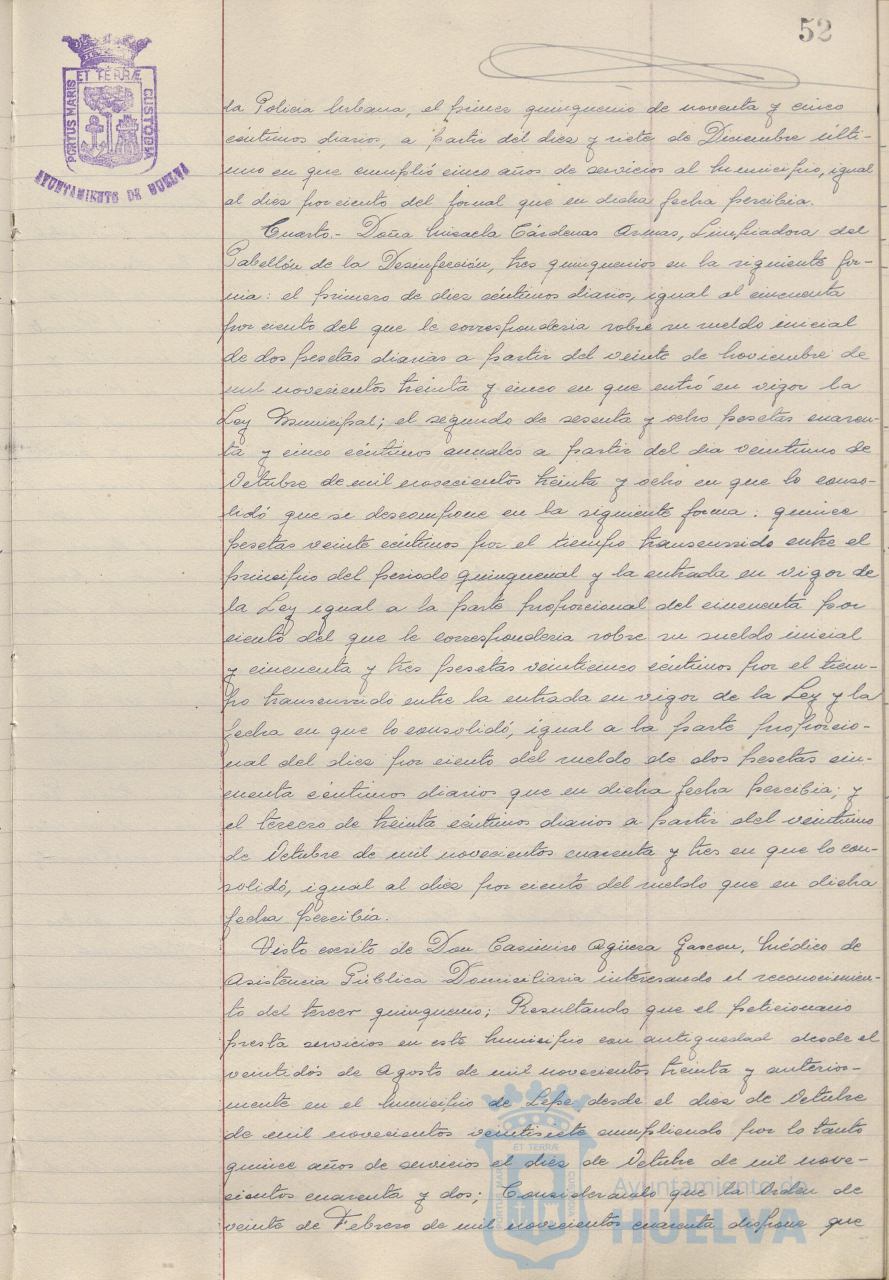 52
ET TERRÆ
PORTUS MARIS
CUSTODIA
AYUNTAMIENTO DE HUELVA
la Policia Urbana, el primer quinquenio de noventa y cinco
céntimos diarios, a partir del diez y siete de Diciembre últi-
mo en que cumplió cinco años de servicios al Municipio, igual
al diez por ciento del jornal que en dicha fecha percibia.
Cuarto.- Doña Micaela Cárdenas Armas, Limpiadora del
Pabellón de la Desinfección, tres quinquenios en la siguiente for-
ma: el primero de diez céntimos diarios, igual al cincuenta
por ciento del que le corresponderia sobre su sueldo inicial
de dos pesetas diarias a partir del veinte de Noviembre de
mil novecientos treinta y cinco en que entró en vigor la
Ley Municipal; el segundo de sesenta y ocho pesetas cuaren-
ta y cinco céntimos anuales a partir del dia veintiuno de
Octubre de mil novecientos treinta y ocho en que lo conso-
lidó que se descompone en la siguiente forma: quince
pesetas veinte céntimos por el tiempo transcurrido entre el
principio del periodo quinquenal y la entrada en vigor de
la Ley igual a la parte proporcional del cincuenta por
ciento del que le corresponderia sobre su sueldo inicial
y cincuenta y tres pesetas veinticinco céntimos por el tiem-
po transcurrido entre la entrada en vigor de la Ley y la
fecha en que lo consolidó, igual a la parte proporcio-
nal del diez por ciento del sueldo de dos pesetas cin-
cuenta céntimos diarios que en dicha fecha percibia; y
el tercero de treinta céntimos diarios a partir del veintiuno
de Octubre de mil novecientos cuarenta y tres en que lo con-
solidó, igual al diez por ciento del sueldo que en dicha
fecha percibia.
Visto escrito de Don Casimiro Agüera Gascon, Médico de
Asistencia Pública Domiciliaria interesando el reconocimien-
to del tercer quinquenio; Resultando que el peticionario
presta servicios en este Municipio con antiguedad desde el
veintidós de Agosto de mil novecientos treinta y anterior-
mente en el Municipio de Lepe desde el diez de Octubre
de mil novecientos veintisiete cumpliendo por lo tanto
quince años de servicios el diez de Octubre de mil nove-
cientos cuarenta y dos; Considerando que la Orden de
veinte de Febrero de mil novecientos cuarenta dispone que
ET TERRÆ
PORTUS MARIS
CUSTODIA
Ayuntamiento de
HUELVA